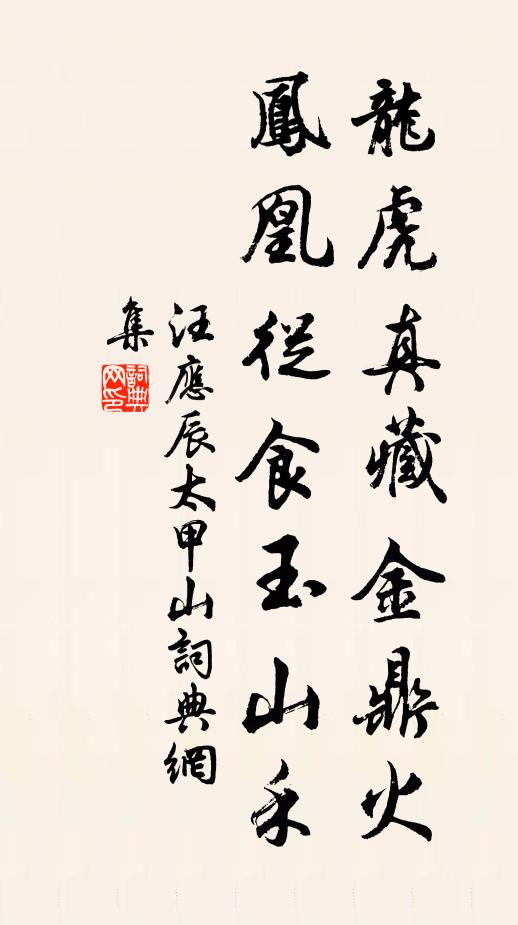 龍虎真藏金鼎火
鳳凰從食玉山禾
汪應辰太甲山詞典網
集
詞典網印